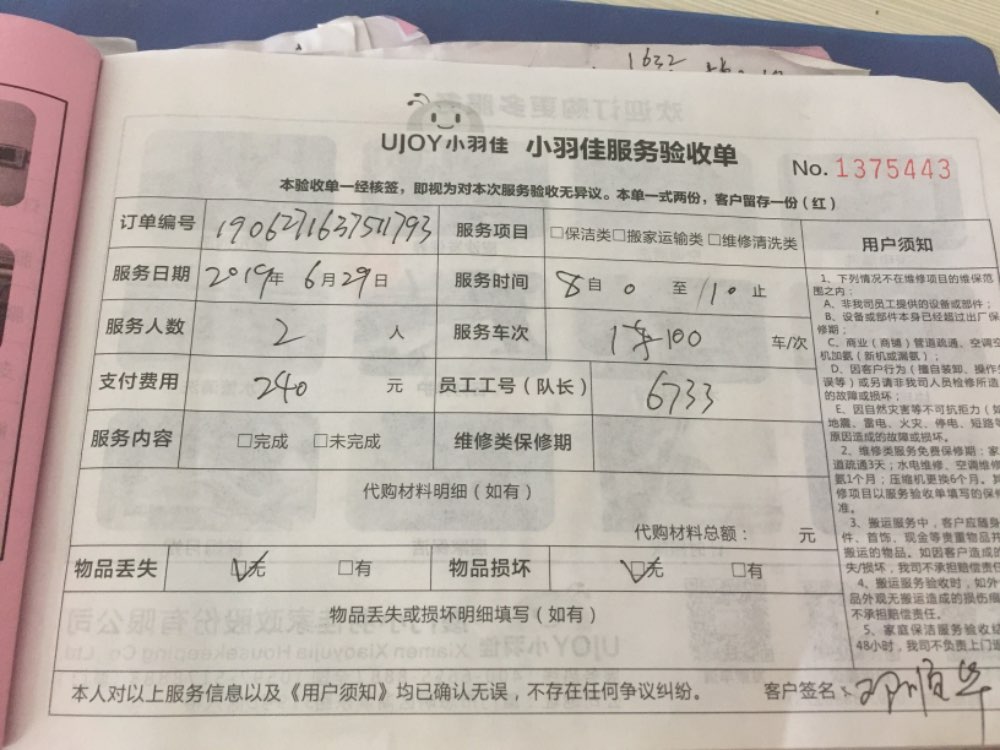 1632
UJOY小羽佳 小羽佳服务验收单
No. 1375443
本验收单一经核签，即视为对本次服务验收无异议。本单一式两份，客户留存一份（红）
订单编号 1906271637511793 服务项目 □保洁类□搬家运输类 □维修清洗类
服务日期 2019年 6月29日 服务时间 8自 0 至 110 止
服务人数 2 人 服务车次 1车100 车/次
支付费用 240 元 员工工号（队长） 6733
服务内容 □完成 □未完成 维修类保修期
代购材料明细（如有）
代购材料总额： 元
物品丢失 ☑无 □有 物品损坏 ☑无 □有
物品丢失或损坏明细填写（如有）
本人对以上服务信息以及《用户须知》均已确认无误，不存在任何争议纠纷。 客户签名：
用户须知
1、下列情况不在维修项目的维保范
围之内：
A、非我司员工提供的设备或部件；
B、设备或部件本身已经超过出厂保
修期；
C、商业（商铺）管道疏通、空调空
机加氨（新机或漏氨）；
D、因客户行为（擅自装卸、操作失
误等）或另请非我司人员检修所造
的故障或损坏；
E、因自然灾害等不可抗拒力（如
地震、雷电、火灾、停电、短路等
原因造成的故障或损坏。
2、维修类服务免费保修期：家
道疏通3天；水电维修、空调维修
氨1个月；压缩机更换6个月。其
修项目以服务验收单填写的保修
准。
3、搬运服务中，客户应随身
件、首饰、现金等贵重物品并
搬运的物品。如因客户造成的
失/损坏，我司不承担赔偿责任
4、搬运服务验收时，如外
品外观无搬运造成的损伤痕
不承担赔偿责任。
5、家庭保洁服务验收结
48小时，我司不负责上门返